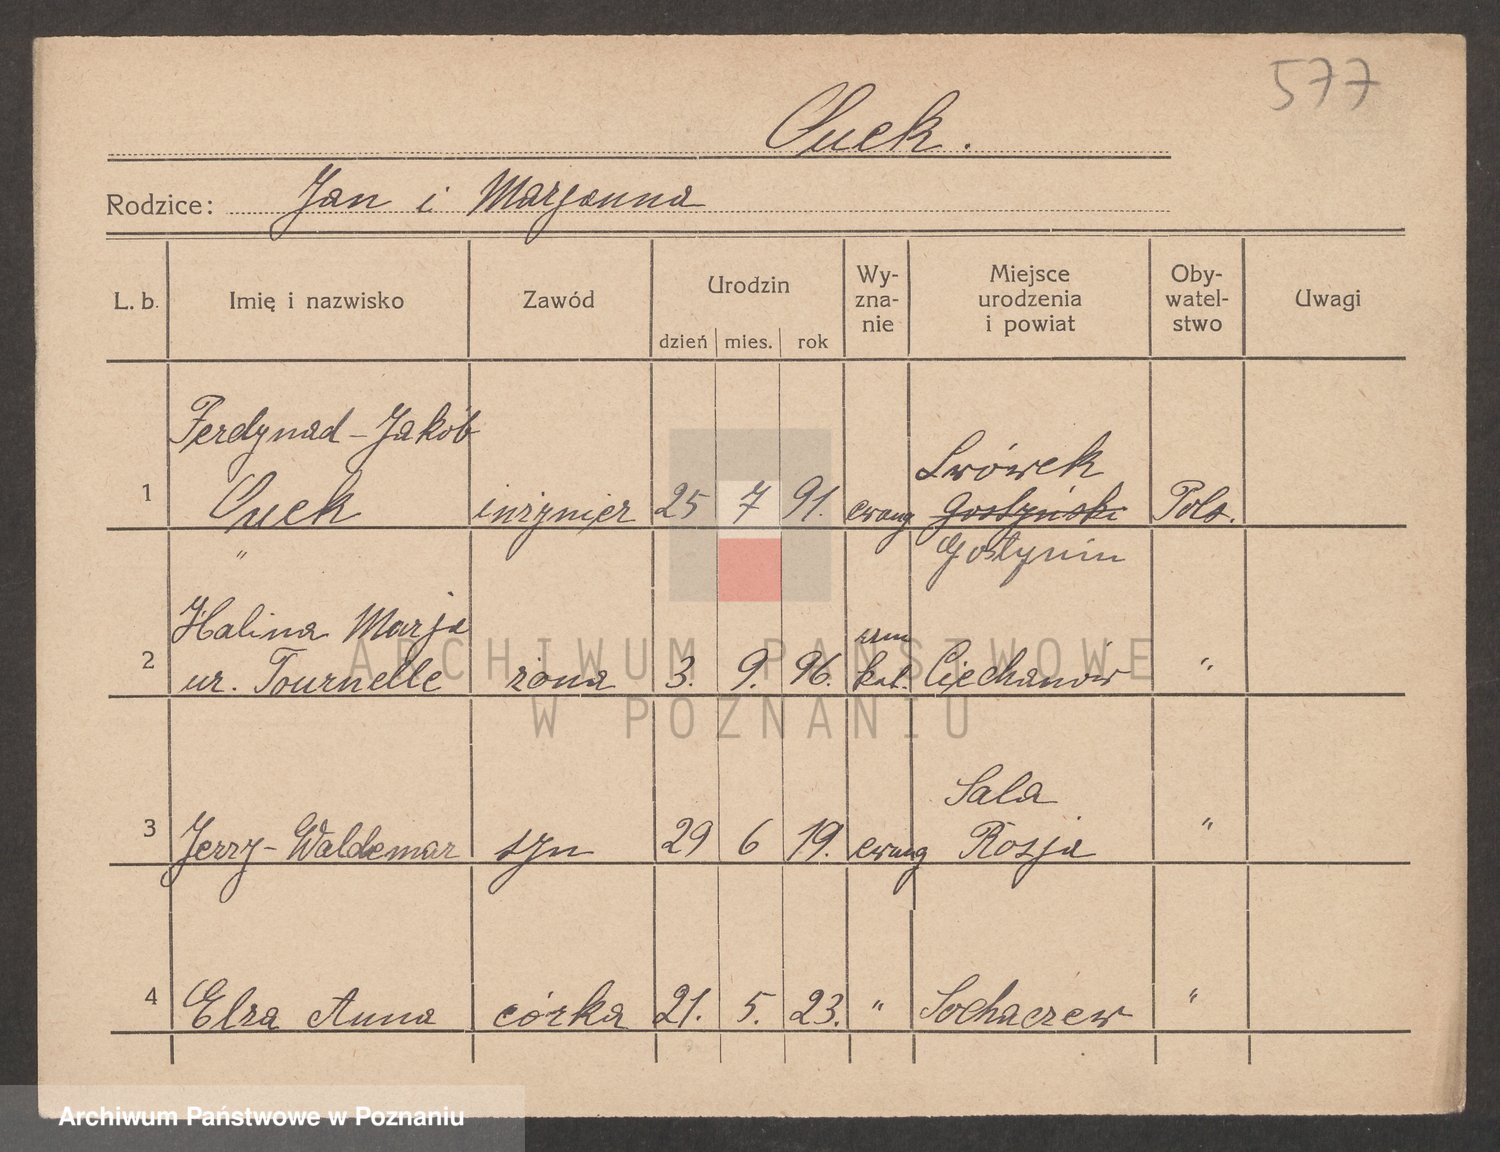 577
Cuek.
Rodzice: Jan i Marjanna
L. b. Imię i nazwisko Zawód Urodzin dzień mies. rok Wy-zna-nie Miejsce urodzenia i powiat Oby-watel-stwo Uwagi
Ferdynad - Jakób
Lwówek
1 Cuek inżynier 25 7 91. ewang Gostyński Pols.
" Gostynin
Halina Marja rzm
2 ur. Tournelle żona 3. 9. 96. kat. Ciechanów "
Sala
3 Jerzy - Waldemar syn 29 6 19. ewang Rosja "
4 Elza Anna córka 21. 5. 23. " Sochaczew "
ARCHIWUM PAŃSTWOWE
W POZNANIU
Archiwum Państwowe w Poznaniu